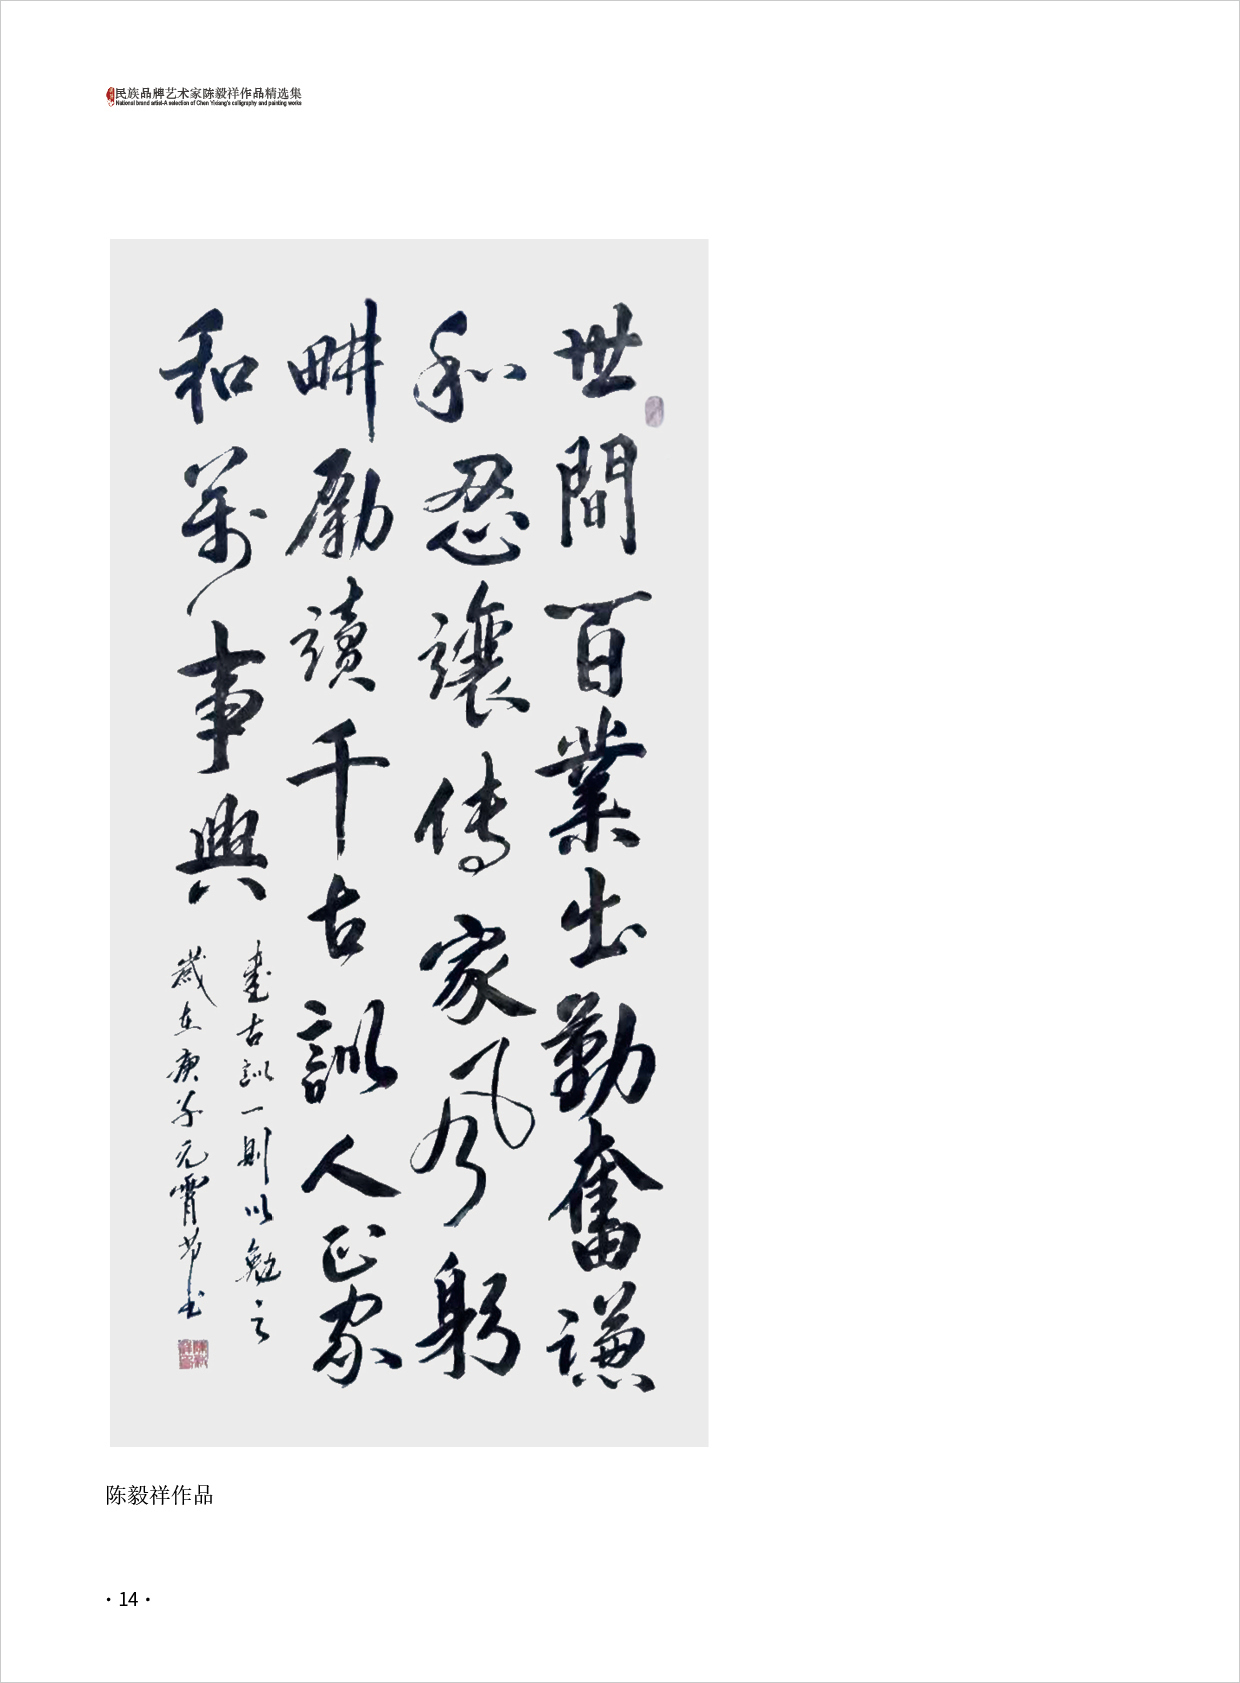 民族品牌艺术家陈毅祥作品精选集
National brand artist-A selection of Chen Yixiang's calligraphy and painting works
世間百業出勤奮謙
和忍讓传家风躬
畊勵讀千古訓人正家
和萬事興
書古訓一則以勉之
歲在庚子元霄节书
陈毅祥作品
· 14 ·